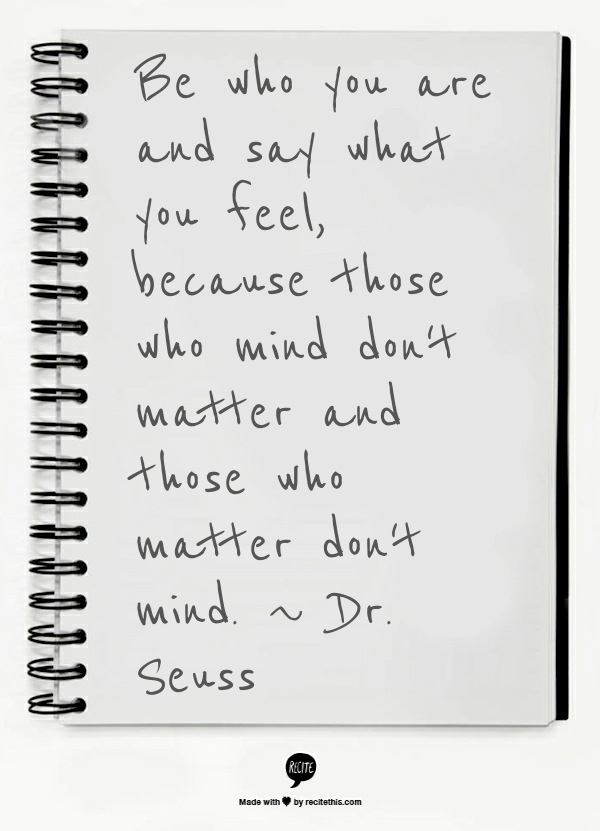 Be who you are
and say what
you feel,
because those
who mind don't
matter and
those who
matter don't
mind. ~ Dr.
Seuss
RECITE
Made with ♥ by recitethis.com